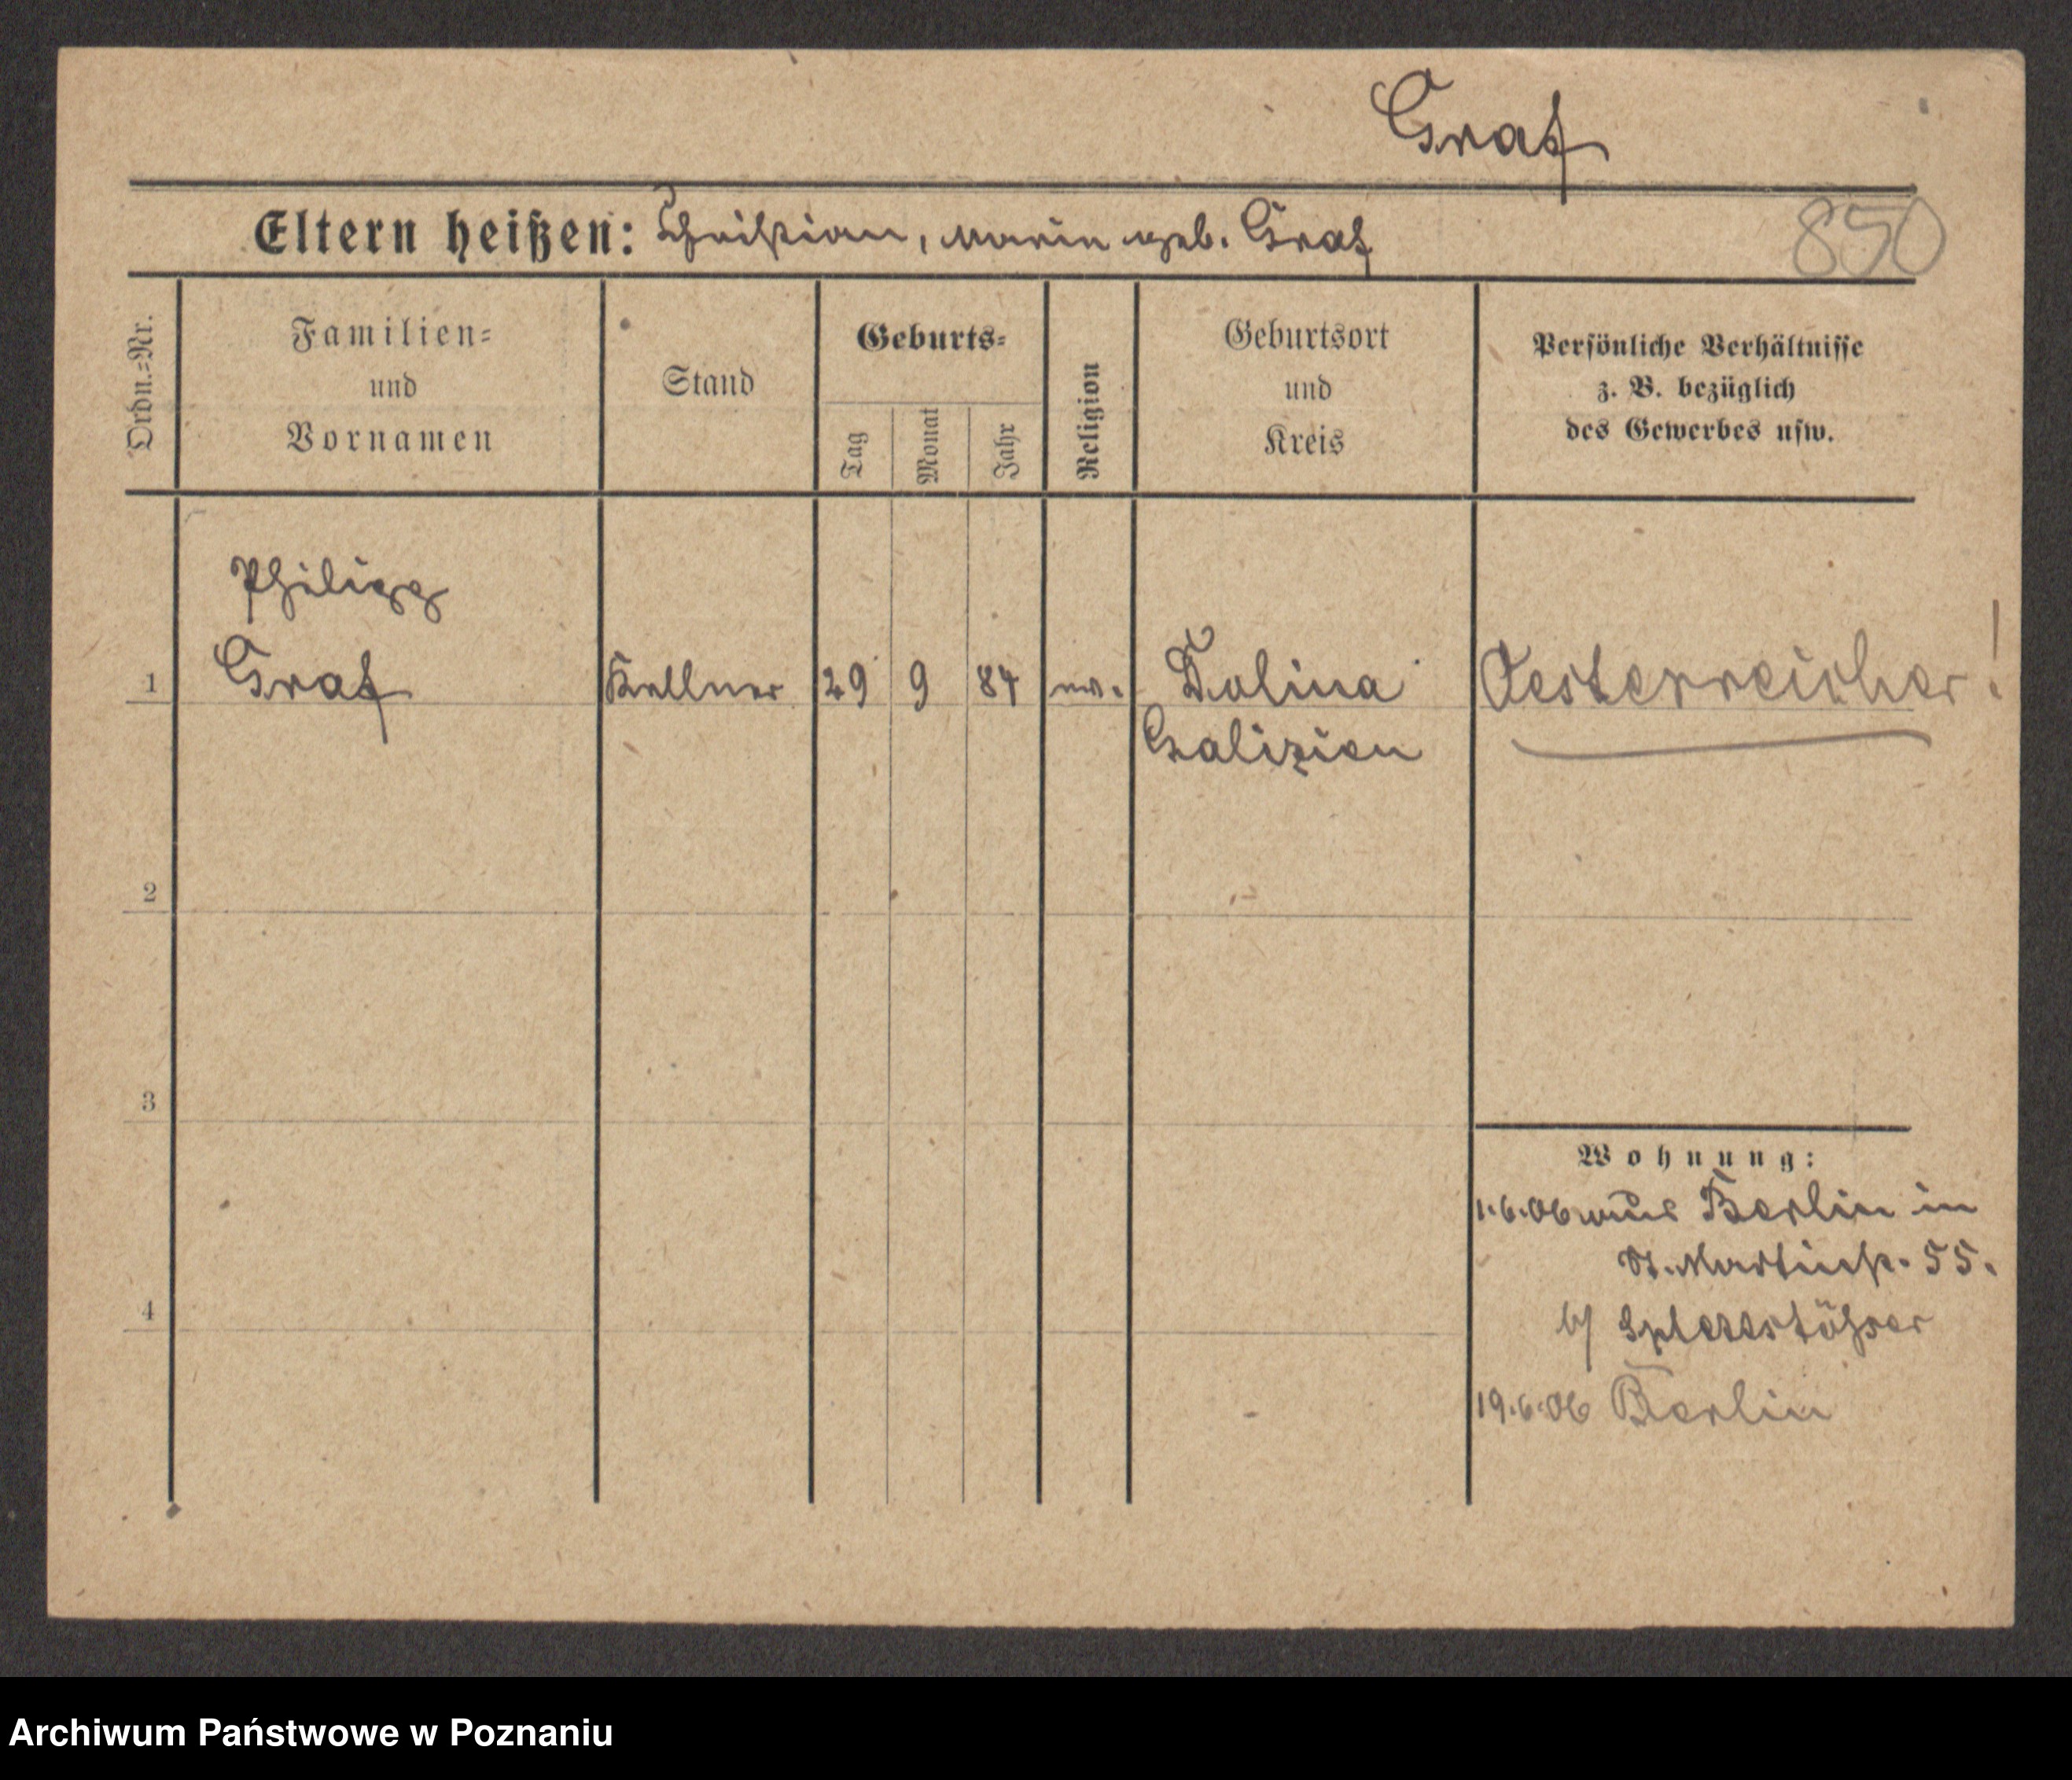 Graf
Eltern heißen: Christian, Marie geb. Graf
850
Ordn.-Nr.
Familien-
und
Vornamen
Stand
Geburts-
Tag
Monat
Jahr
Religion
Geburtsort
und
Kreis
Persönliche Verhältnisse
z. B. bezüglich
des Gewerbes usw.
Philipp
1 Graf Kellner 29 9 84 ev. Dolina Oesterreicher!
Galizien
2
3
4
Wohnung:
1.6.06 aus Berlin in
St. Martinstr. 55.
b/
19.6.06 Berlin
Archiwum Państwowe w Poznaniu